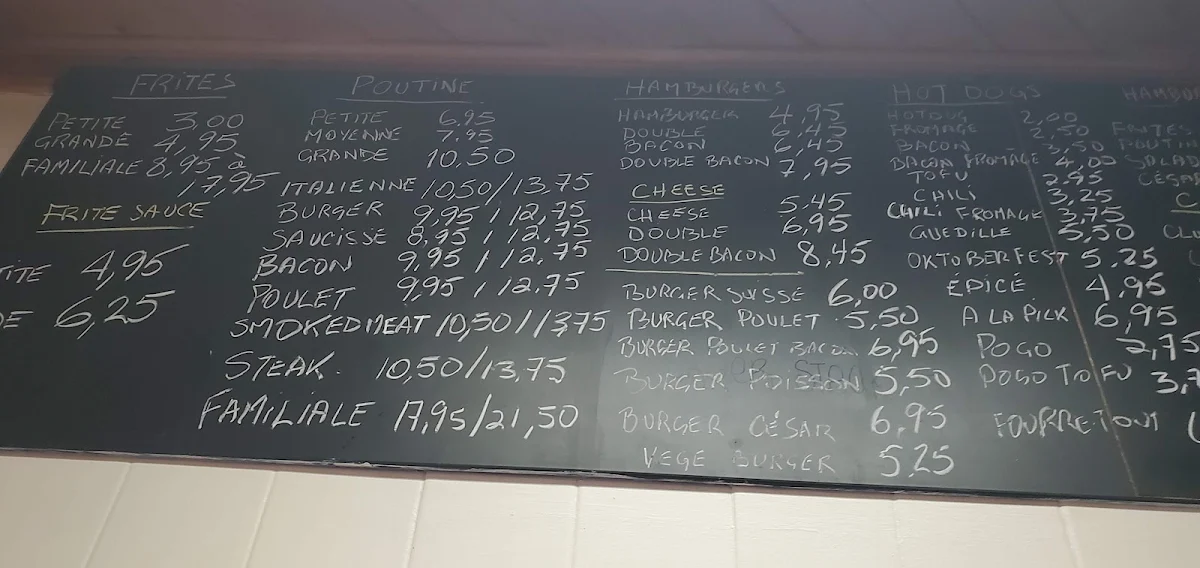 FRITES
PETITE 3,00
GRANDE 4,95
FAMILIALE 8,95 à
17,95
FRITE SAUCE
TITE 4,95
DE 6,25
POUTINE
PETITE 6,95
MOYENNE 7,95
GRANDE 10,50
ITALIENNE 10,50/13,75
BURGER 9,95 / 12,75
SAUCISSE 8,95 / 12,75
BACON 9,95 / 12,75
POULET 9,95 / 12,75
SMOKED MEAT 10,50/13,75
STEAK. 10,50/13,75
FAMILIALE 17,95/21,50
HAMBURGERS
HAMBURGER 4,95
DOUBLE 6,45
BACON 6,45
DOUBLE BACON 7,95
CHEESE
CHEESE 5.45
DOUBLE 6,95
DOUBLE BACON 8,45
BURGER SUISSE 6,00
BURGER POULET 5,50
BURGER POULET BACON 6,95
BURGER POISSON 5,50
BURGER CÉSAR 6,95
VEGE BURGER 5,25
HOT DOGS
HOTDOG 2,00
FROMAGE 2,50
BACON 3,50
BACON FROMAGE 4,00
TOFU 2.95
CHILI 3,25
CHILI FROMAGE 3,75
GUEDILLE 5,50
OKTOBERFEST 5,25
ÉPICÉ 4,95
A LA PICK 6,95
POGO 2,75
POGO TOFU 3,7
FOURRE-TOUT
HAMBU
FRITES
POUTIN
SALAD
CÉSAR
C
CLU